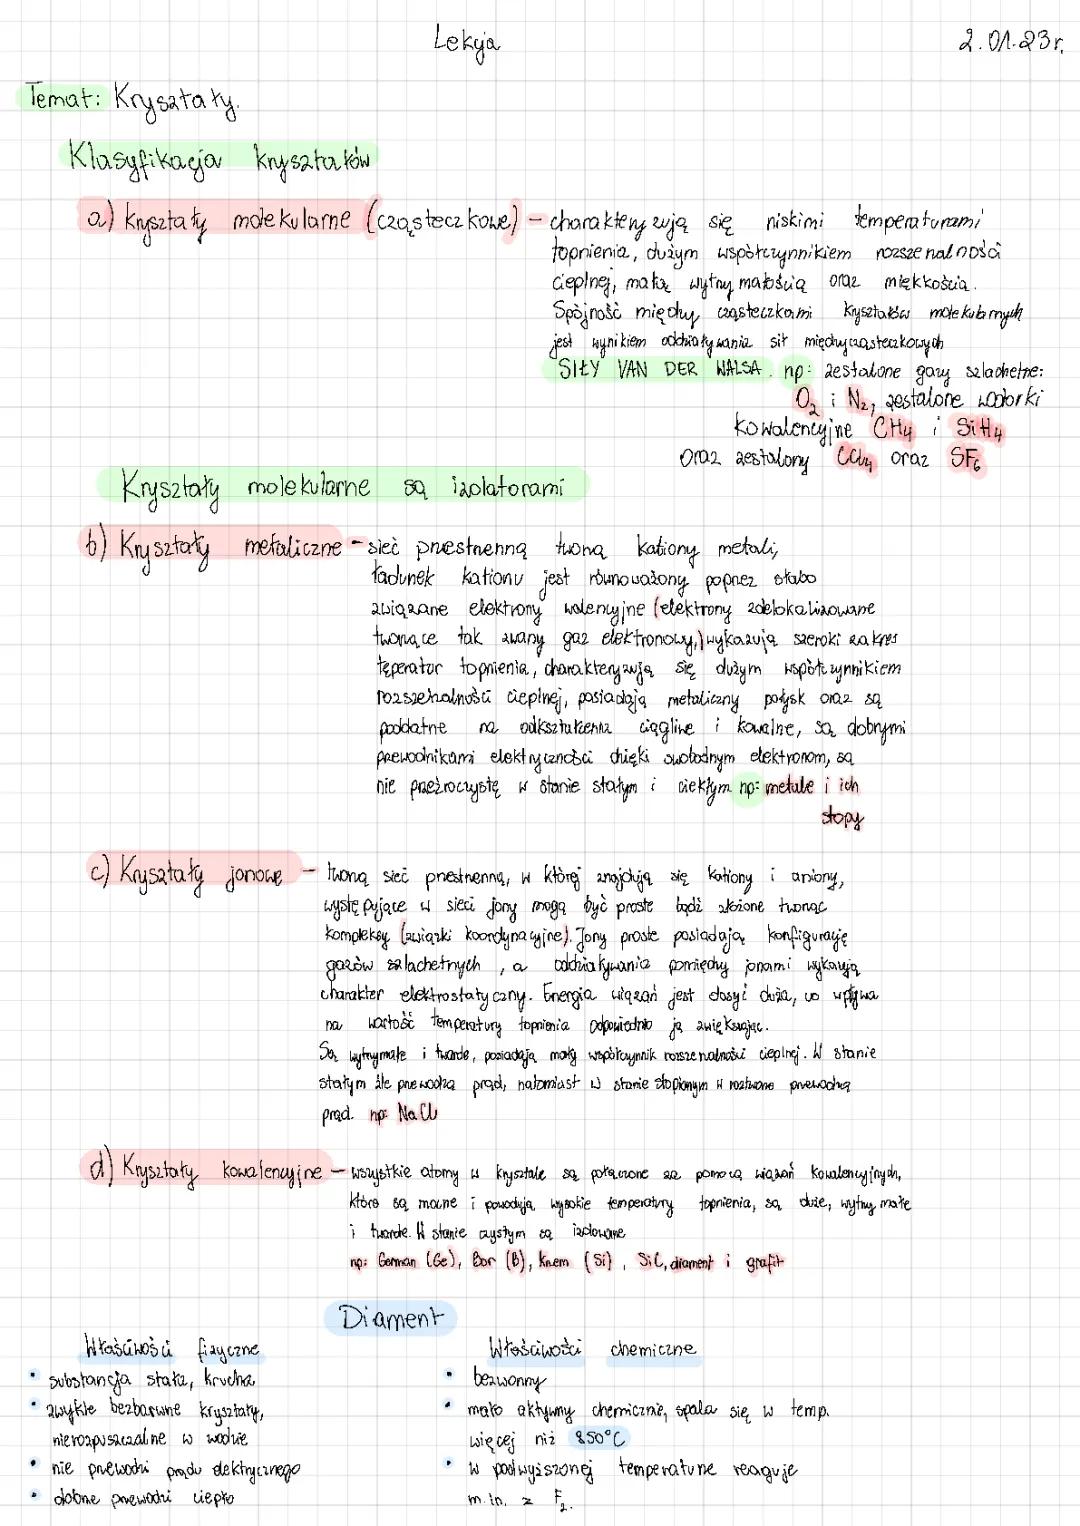 Lekcja
2.01.23r.
Temat: Kryształy.
Klasyfikacja kryształów
a) kryształy molekularne (cząsteczkowe) - charakteryzują się niskimi temperaturami
topnienia, dużym współczynnikiem rozszerzalności
cieplnej, małą wytrzymałością oraz miękkością.
Spójność między cząsteczkami kryształów molekularnych
jest wynikiem oddziaływania sił międzycząsteczkowych
SIŁY VAN DER WALSA. np: zestalone gazy szlachetne:
O₂ i N₂, zestalone wodorki
kowalencyjne CH₄ i SiH₄
oraz zestalony CCl₄ oraz SF₆
Kryształy molekularne są izolatorami
b) Kryształy metaliczne - sieć przestrzenną tworzą kationy metali,
ładunek kationu jest równoważony poprzez słabo
związane elektrony walencyjne (elektrony zdelokalizowane
tworzące tak zwany gaz elektronowy,) wykazują szeroki zakres
teperatur topnienia, charakteryzują się dużym współczynnikiem
rozszerzalności cieplnej, posiadają metaliczny połysk oraz są
poddatne na odkształcenia ciągliwe i kowalne, są dobrymi
przewodnikami elektryczności dzięki swobodnym elektronom, są
nie przeźroczystę w stanie stałym i ciekłym np: metale i ich
stopy
c) Kryształy jonowe - tworzą sieć przestrzenną, w której znajdują się kationy i aniony,
występujące w sieci jony mogą być proste bądź złożone tworząc
kompleksy (związki koordynacyjne). Jony proste posiadają konfigurację
gazów szlachetnych, a oddziaływania pomiędzy jonami wykazują
charakter elektrostatyczny. Energia wiązań jest dosyć duża, co wpływa
na wartość temperatury topnienia odpowiednio ją zwiększając.
Są wytrzymałe i twarde, posiadają mały współczynnik rozszerzalności cieplnej. W stanie
stałym źle przewodzą prąd, natomiast w stanie stopionym w roztworze przewodzą
prąd. np: NaCl
d) Kryształy kowalencyjne - wszystkie atomy w krysztale są połączone za pomocą wiązań kowalencyjnych,
które są mocne i powodują wysokie temperatury topnienia, są duże, wytrzymałe
i twarde. W stanie czystym są izolowane
np: German (Ge), Bor (B), krzem (Si), SiC, diament i grafit
Diament
Właściwości fizyczne
• substancja stała, krucha
• zwykle bezbarwne kryształy,
nierozpuszczalne w wodzie
• nie przewodzi prądu elektrycznego
• dobrze przewodzi ciepło
Właściwości chemiczne
• bezwonny
• mało aktywny chemicznie, spala się w temp.
więcej niż 850°C
• w podwyższonej temperaturze reaguje
m.in. z F₂.